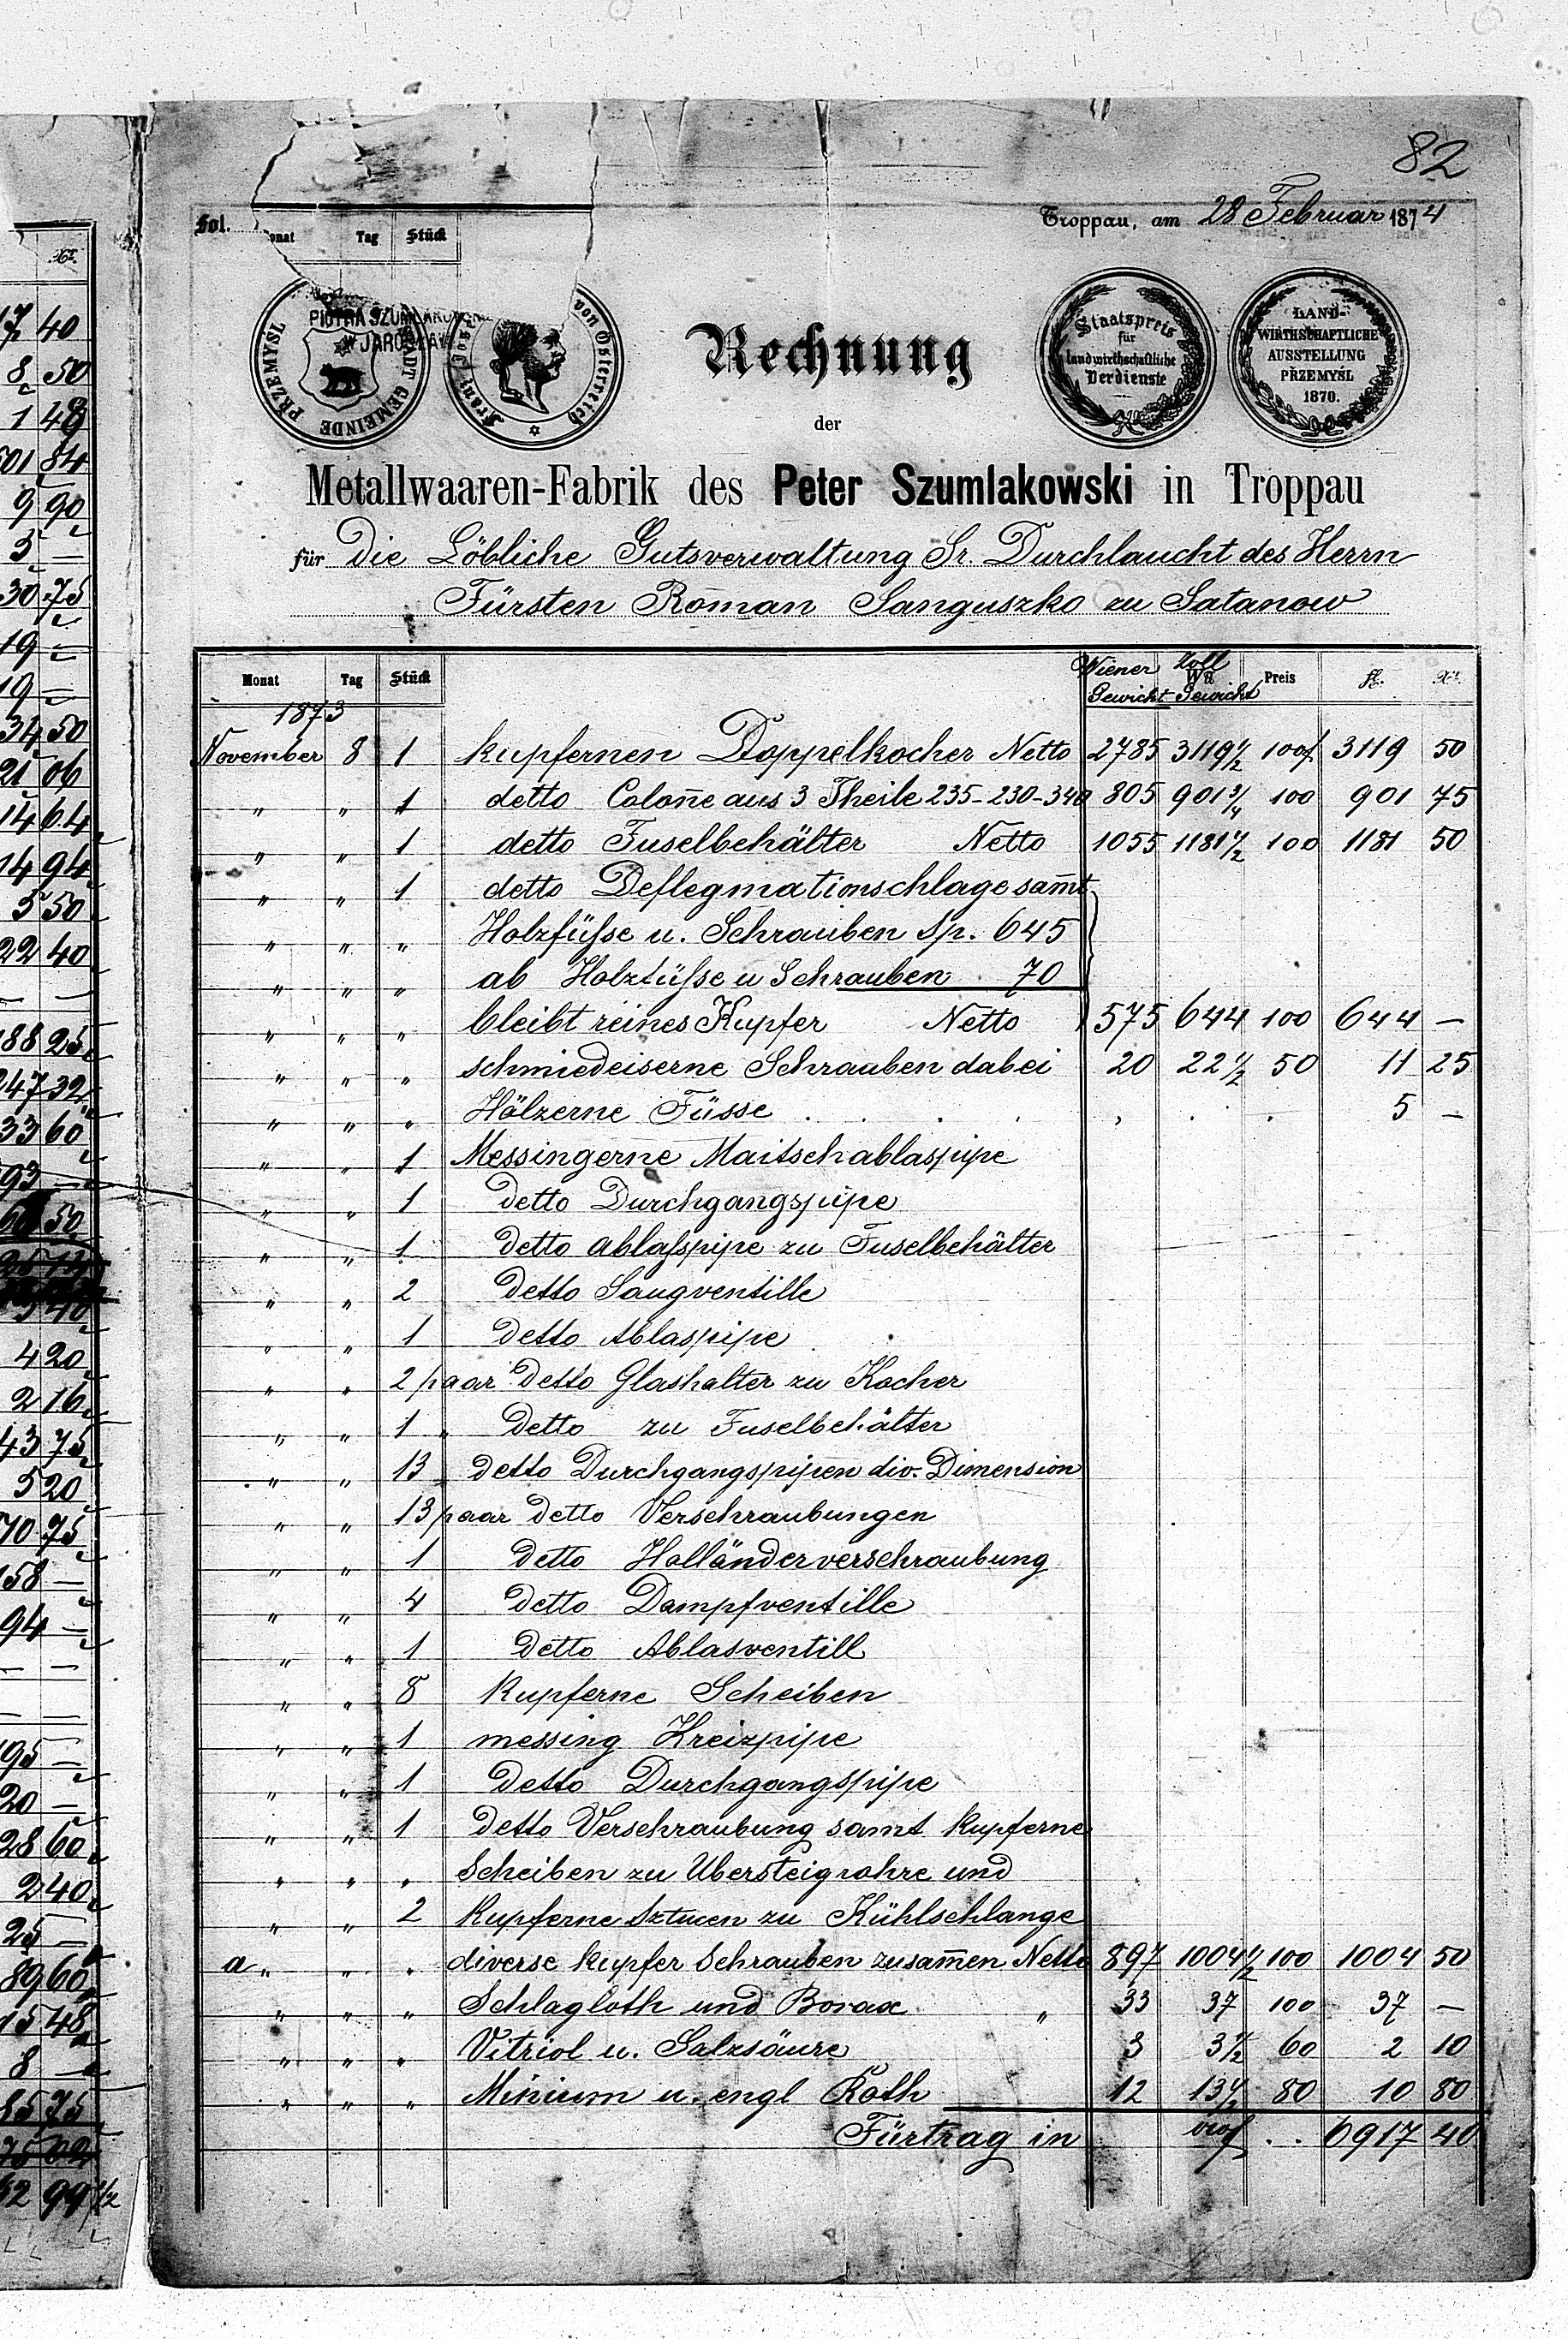 82
Fol.
onat Tag Stück
Troppau, am 28 Februar 1874
PRZEMYŚL STADT GEMEINDE
PIOTRA SZUMLAKOWSKI
W JAROSŁAW
Franz Josef von Österreich
Staatspreis
für
landwirthschaftliche
Verdienste
LAND-
WIRTHSCHAFTLICHE
AUSSTELLUNG
PRZEMYŚL
1870.
Rechnung
der
Metallwaaren-Fabrik des Peter Szumlakowski in Troppau
für Die Löbliche Gutsverwaltung Sr. Durchlaucht des Herrn
Fürsten Roman Sanguszko zu Satanow
Monat Tag Stück Wiener Gewicht Zoll Gewicht Preis fl. Xr.
1873
November 8 1 kupfernen Doppelkocher Netto 2785 3119 1/2 100f 3119 50
" " 1 detto Coloñe aus 3 Theile 235-230-340 805 901 3/4 100 901 75
" " 1 detto Fuselbehälter Netto 1055 1181 1/2 100 1181 50
" " 1 detto Deflegmationschlage sam̄t
" " " Holzfüsse u. Schrauben Sp. 645
" " " ab Holzfüsse u Schrauben 70
" " " bleibt reines Kupfer Netto 575 644 100 644 —
" " " schmiedeiserne Schrauben dabei 20 22 1/2 50 11 25
" " " Hölzerne Füsse . . . . . . 5 —
" " 1 Messingerne Maitschablaspipe
" " 1 detto Durchgangspipe
" " 1 detto ablasspipe zu Fuselbehälter
" " 2 detto Saugventille
" " 1 detto Ablaspipe
" " 2 paar detto Glashalter zu Kocher
" " 1 " detto zu Fuselbehälter
" " 13 detto Durchgangspipen div. Dimension
" " 13 paar detto Verschraubungen
" " 1 detto Holländerverschraubung
" " 4 detto Dampfventille
" " 1 detto Ablasventill
" " 8 kupferne Scheiben
" " 1 messing Kreizpipe
" " 1 detto Durchgangspipe
" " 1 detto Verschraubung samt kupferne
" " " Scheiben zu Ubersteigrohre und
" " 2 kupferne Sztucen zu Kühlschlange
a " " " diverse kupfer Schrauben zusam̄en Netto 897 1004 1/2 100 1004 50
" " " Schlagloth und Borax " 33 37 100 37 —
" " " Vitriol u. Salzsäure 3 3 1/2 60 2 10
" " " Minium u. engl Roth 12 13 1/2 80 10 80
Fürtrag in . . 6917 40